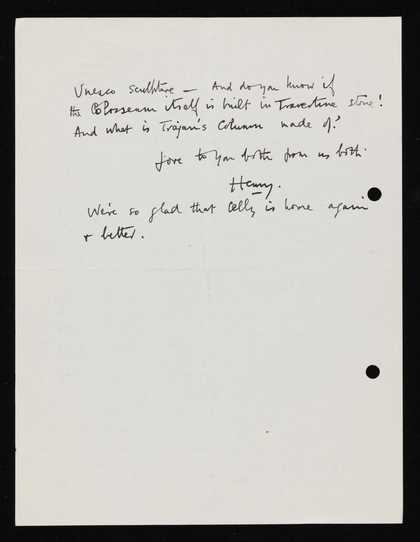 Unesco sculpture — And do you know if
the Colosseum itself is built in Travertine stone!
And what is Trajan's Column made of?
Love to you both from us both.
Henry.
We're so glad that Celly is home again
& better.